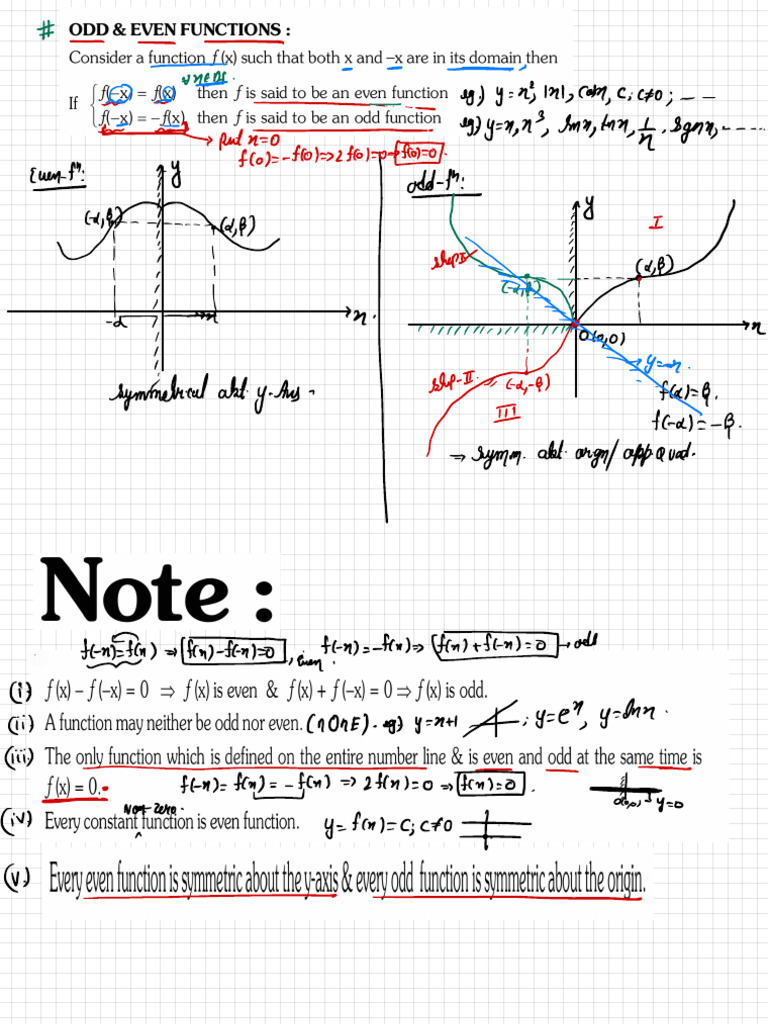 # ODD & EVEN FUNCTIONS :
Consider a function f (x) such that both x and –x are in its domain then
If { f(–x) = f(x) then f is said to be an even function eg) y = x², |x|, cosx, C; C≠0; – –
f(–x) = –f(x) then f is said to be an odd function eg) y=x, x³, sinx, tanx, 1/x, sgnx, - - - -
Put x=0
f(0) = -f(0) ⇒ 2f(0)=0 → f(0)=0.
Even-fⁿ:
odd-fⁿ:
y
y
I
(-α,β)
(α,β)
step I
(α,β)
(-α,β)
-α
x.
x
O(0,0)
y=-x.
step-II
(-α,-β)
III
f(α)=β.
f(-α)=-β.
symmetrical abt y-Axis.
→ symm. abt. orgn/opp Quad.
Note :
f(-x)=f(x) ⇒ f(x)-f(-x)=0, even. f(-x)=-f(x) ⇒ f(x)+f(-x)=0 → odd
(i) f (x) – f (–x) = 0 ⇒ f (x) is even & f (x) + f (–x) = 0 ⇒ f (x) is odd.
(ii) A function may neither be odd nor even. (NONE). eg) y=x+1 ; y=eˣ, y=lnx.
(iii) The only function which is defined on the entire number line & is even and odd at the same time is
f (x) = 0. f(-x)= f(x) = -f(x) ⇒ 2f(x)=0 ⇒ f(x)=0.
O(0,0) y=0
Non-zero.
(iv) Every constant function is even function. y= f(x)=C; C≠0
(v.) Every even function is symmetric about the y-axis & every odd function is symmetric about the origin.